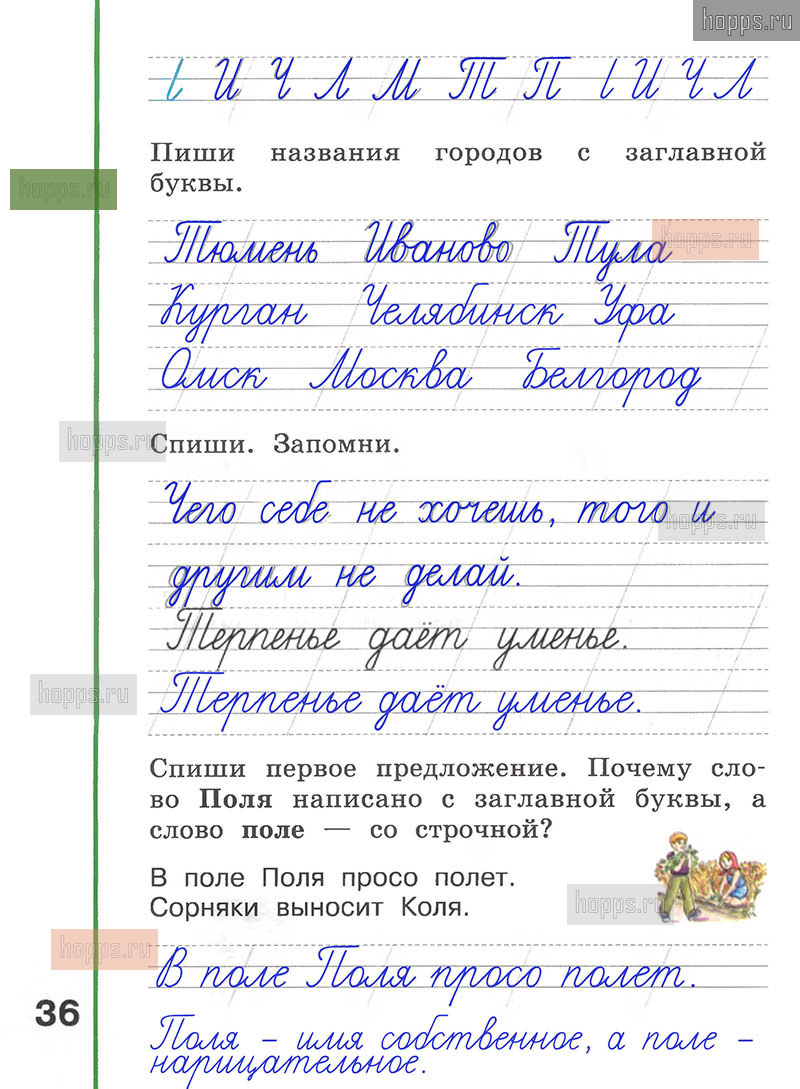 hopps.ru
И Ч Л М Т П И Ч Л
Пиши названия городов с заглавной
буквы.
hopps.ru
Тюмень Иваново Тула
hopps.ru
Курган Челябинск Уфа
Омск Москва Белгород
hopps.ru
Спиши. Запомни.
Чего себе не хочешь, того и
hopps.ru
другим не делай.
Терпенье даёт уменье.
hopps.ru
Терпенье даёт уменье.
Спиши первое предложение. Почему сло-
во Поля написано с заглавной буквы, а
слово поле — со строчной?
В поле Поля просо полет.
Сорняки выносит Коля.
hopps.ru
hopps.ru
В поле Поля просо полет.
36
Поля - имя собственное, а поле -
нарицательное.